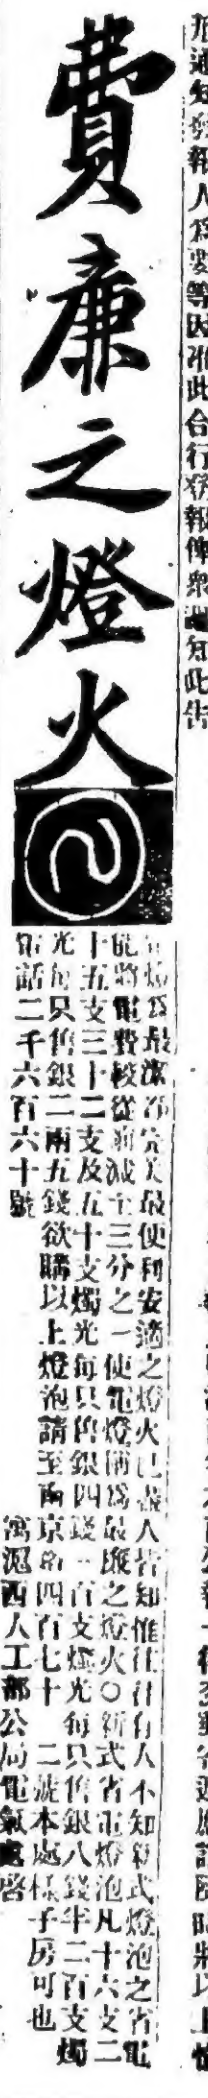 知發報人爲要等因准此合行登報俾衆週知此告
費廉之燈火
電燈爲最潔淨完美最便利安適之燈火已盡人皆知惟往往有人不知新式燈泡之省電
能將電費較從前減至三分之一使電燈價爲最廉之燈火〇新式省電燈泡凡十六支二
十五支三十二支及五十支燭光每只售銀四錢一百支燭光每只售銀八錢半二百支燭
光每只售銀二兩五錢欲購以上燈泡請至南京路四百七十二號本處樣子房可也
電話二千六百六十號
寓滬西人工部公局電氣處啓